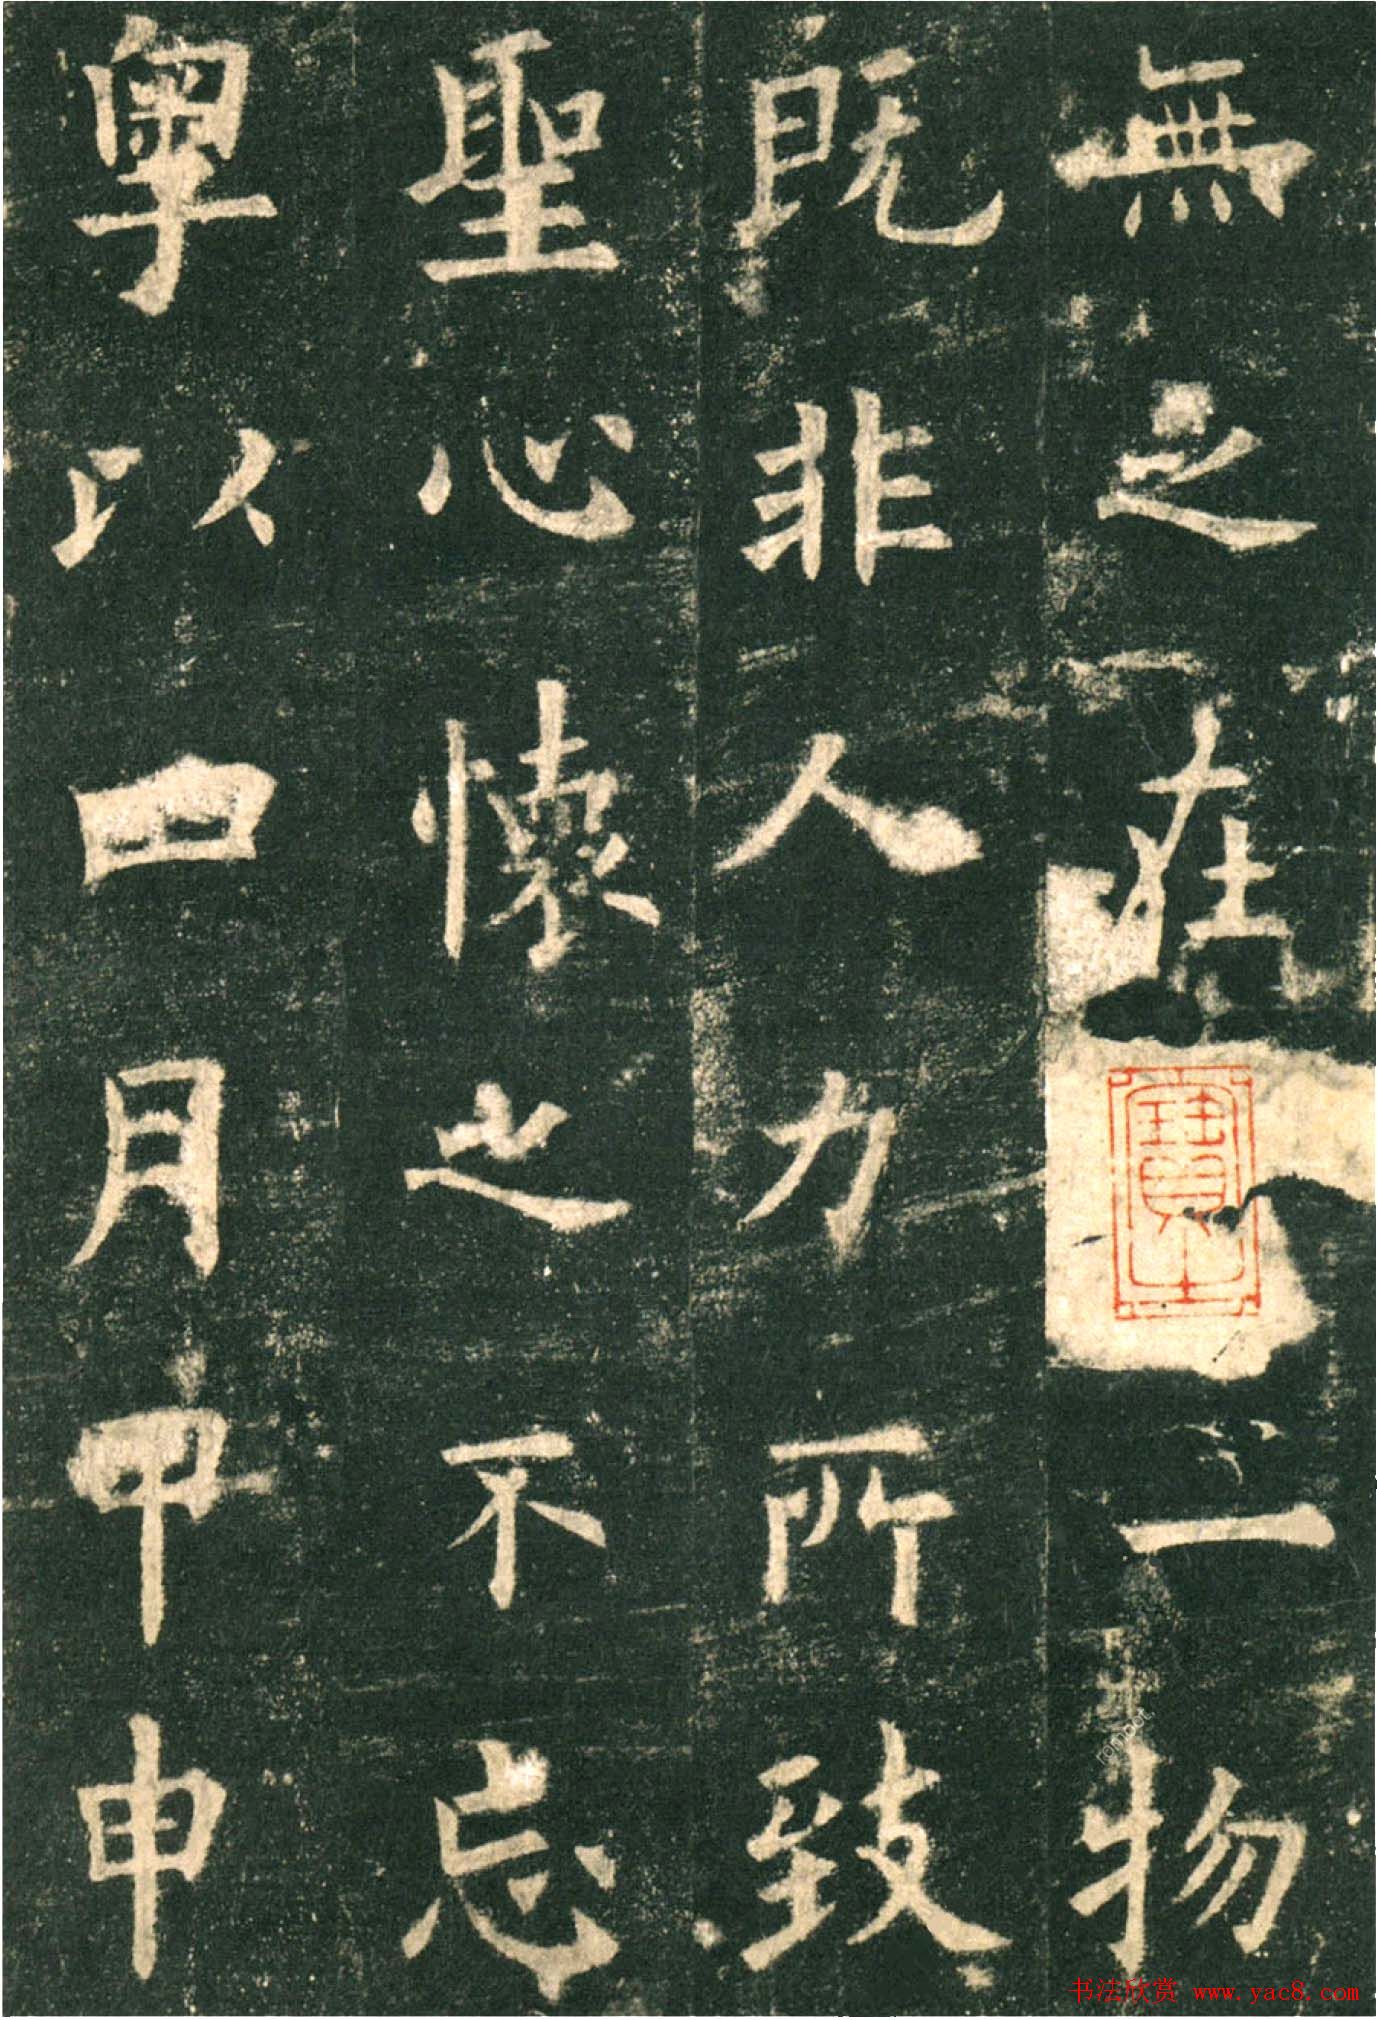 無之在一物
既非人力所致
聖心懷之不忘
粤以四月甲申
書法欣赏 www.yac8.com